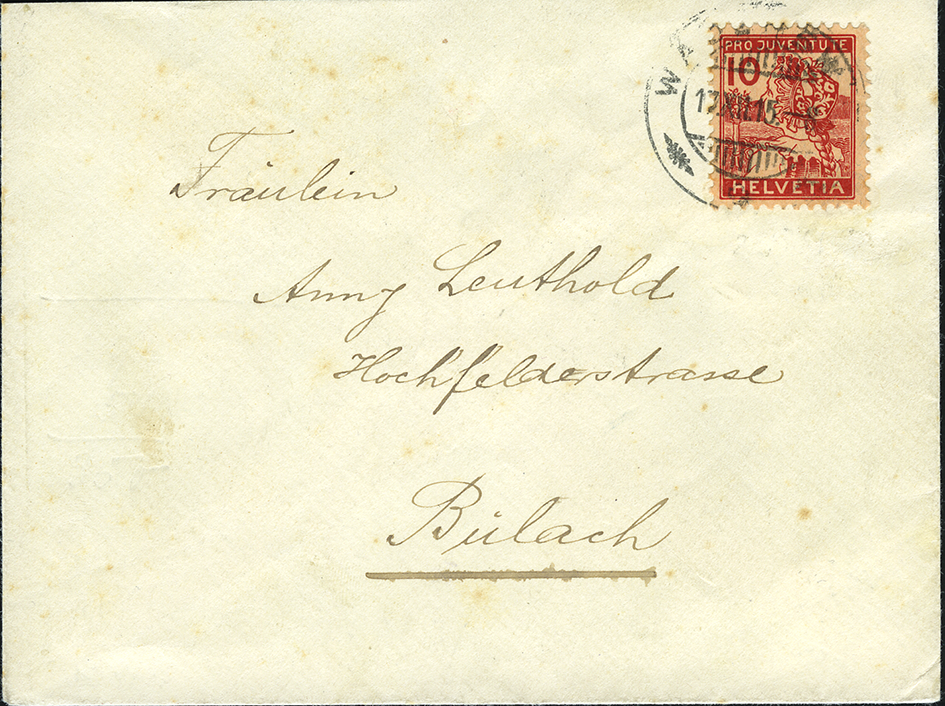 PRO JUVENTUTE
10
17.XII.15.
HELVETIA
Fräulein
Anny Leuthold
Hochfelderstrasse
Bülach